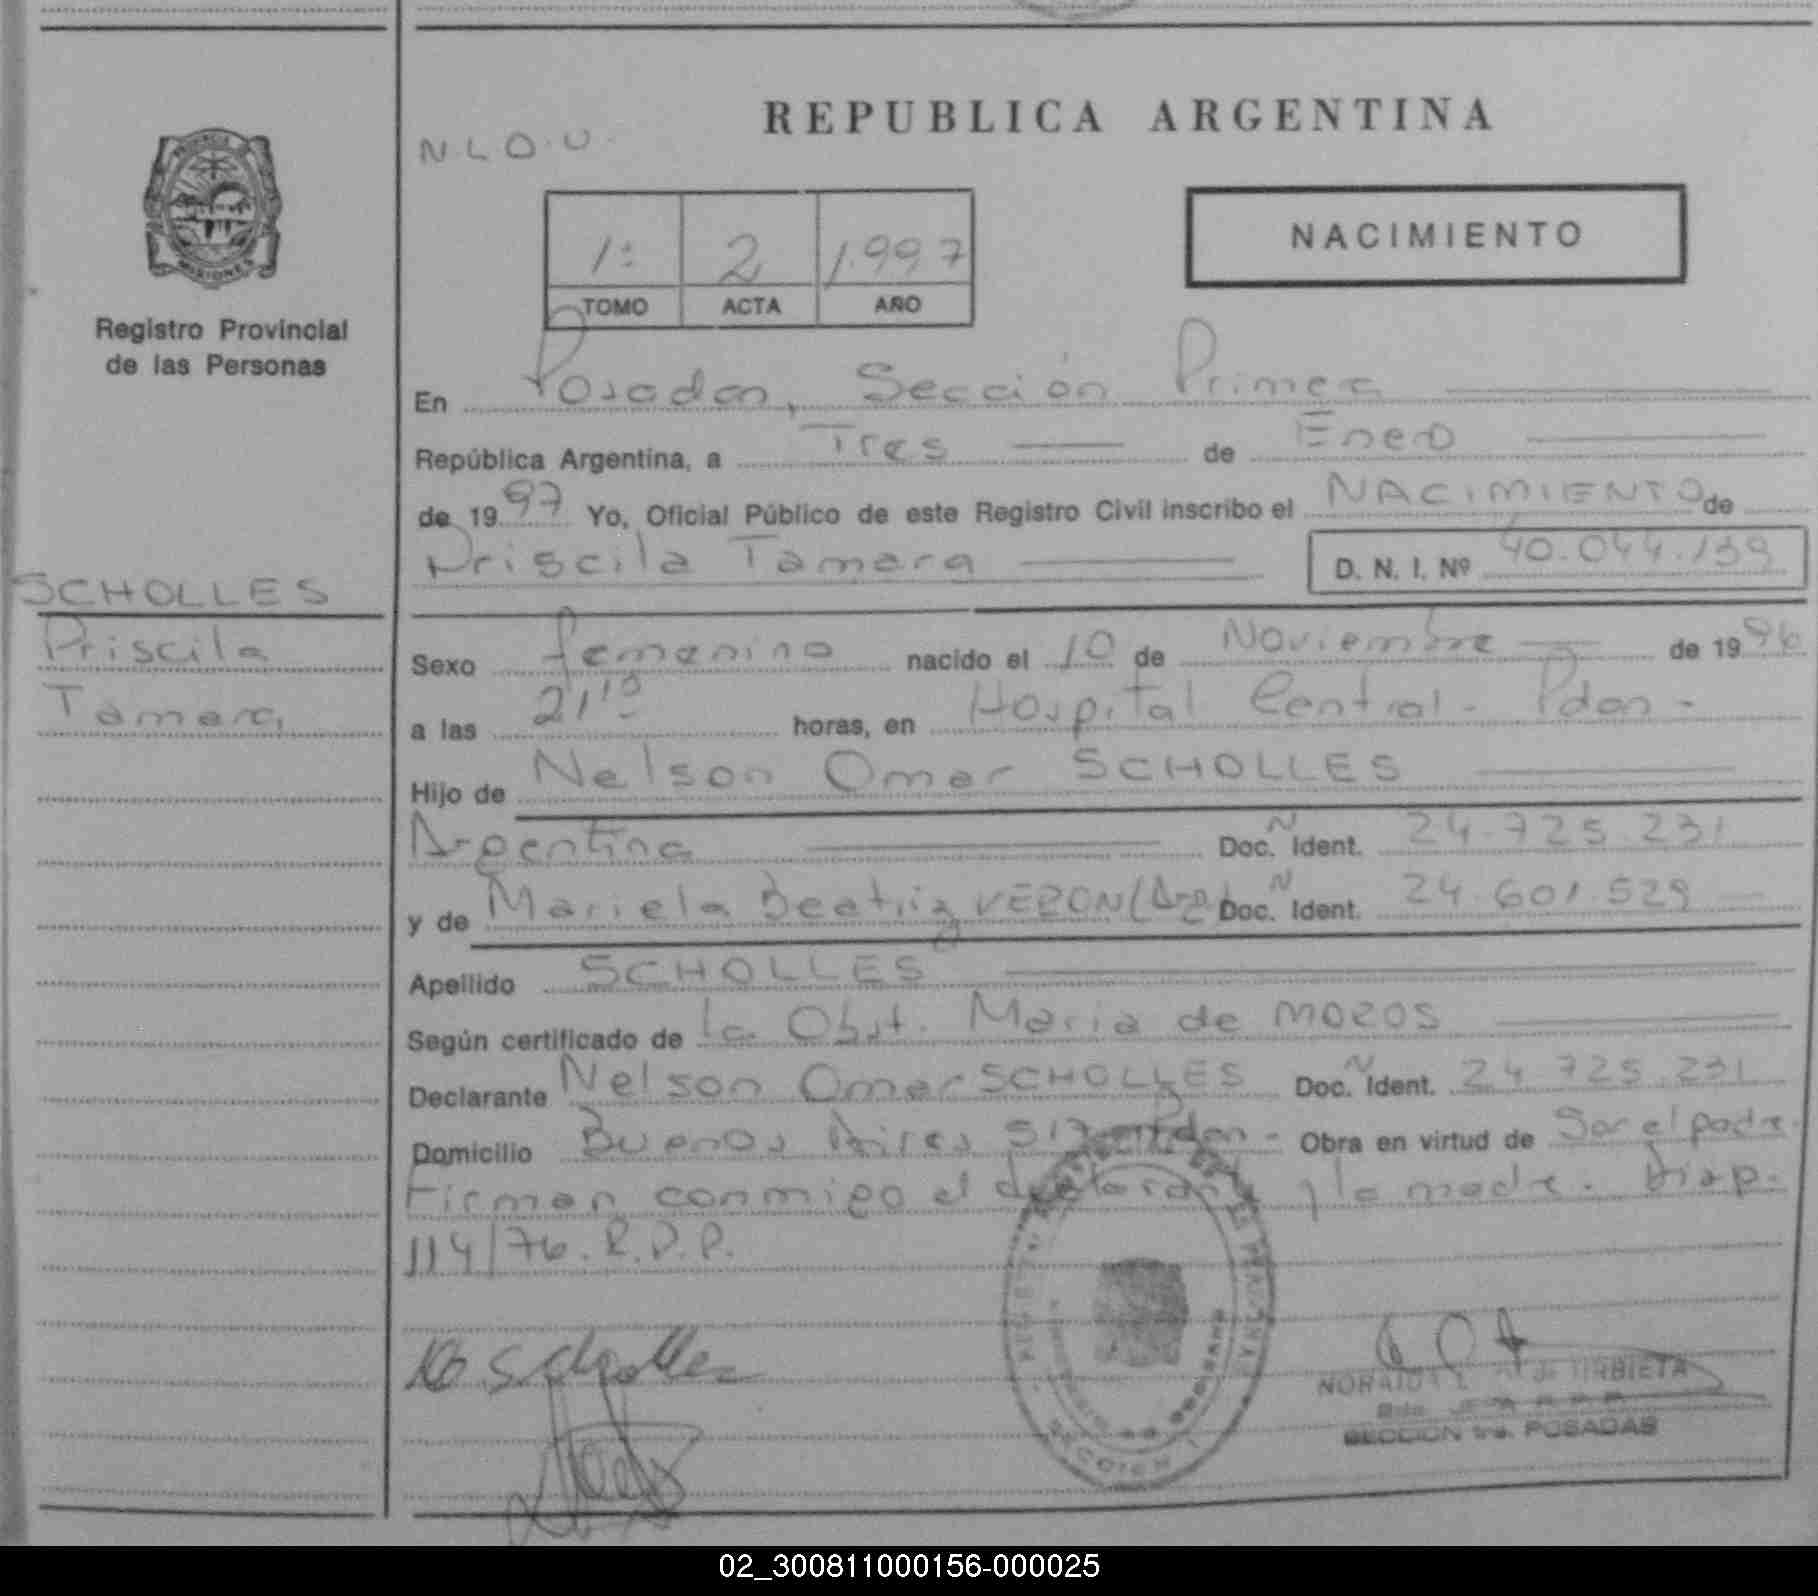 REPUBLICA ARGENTINA
N.L.O.U.
PROVINCIA
MISIONES
Registro Provincial
de las Personas
1º 2 1.997
TOMO ACTA AÑO
NACIMIENTO
En Posadas, Sección Primera
República Argentina, a Tres de Enero
de 1997 Yo, Oficial Público de este Registro Civil inscribo el NACIMIENTO de
Priscila Tamara D. N. I. Nº 40.044.139
SCHOLLES
Priscila
Tamara
Sexo femenino nacido el 10 de Noviembre de 1996
a las 21,10 horas, en Hospital Central - Pdas -
Hijo de Nelson Omar SCHOLLES
Argentina Doc. N Ident. 24.725.231
y de Mariela Beatriz VERON (Arg) Doc. N Ident. 24.601.529
Apellido SCHOLLES
Según certificado de la Obst. Maria de MOROS
Declarante Nelson Omar SCHOLLES Doc. N Ident. 24.725.231
Domicilio Buenos Aires Pdas - Obra en virtud de Ser el padre.
Firman conmigo el declarante y la madre. Disp.
114/76. R.P.P.
SECCION 1ra. POSADAS
02_300811000156-000025